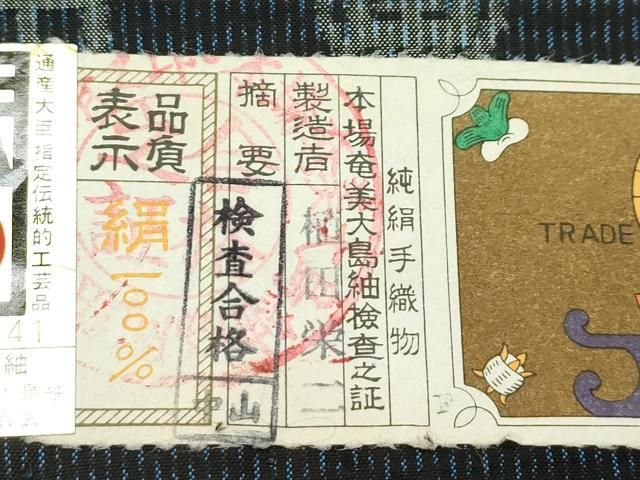 TRADE
純絹手織物
本場奄美大島紬検査之証
製造者
植田栄二
摘要
検査合格
中山
品質
表示
絹
一〇〇%
通産大臣指定伝統的工芸品
41
紬